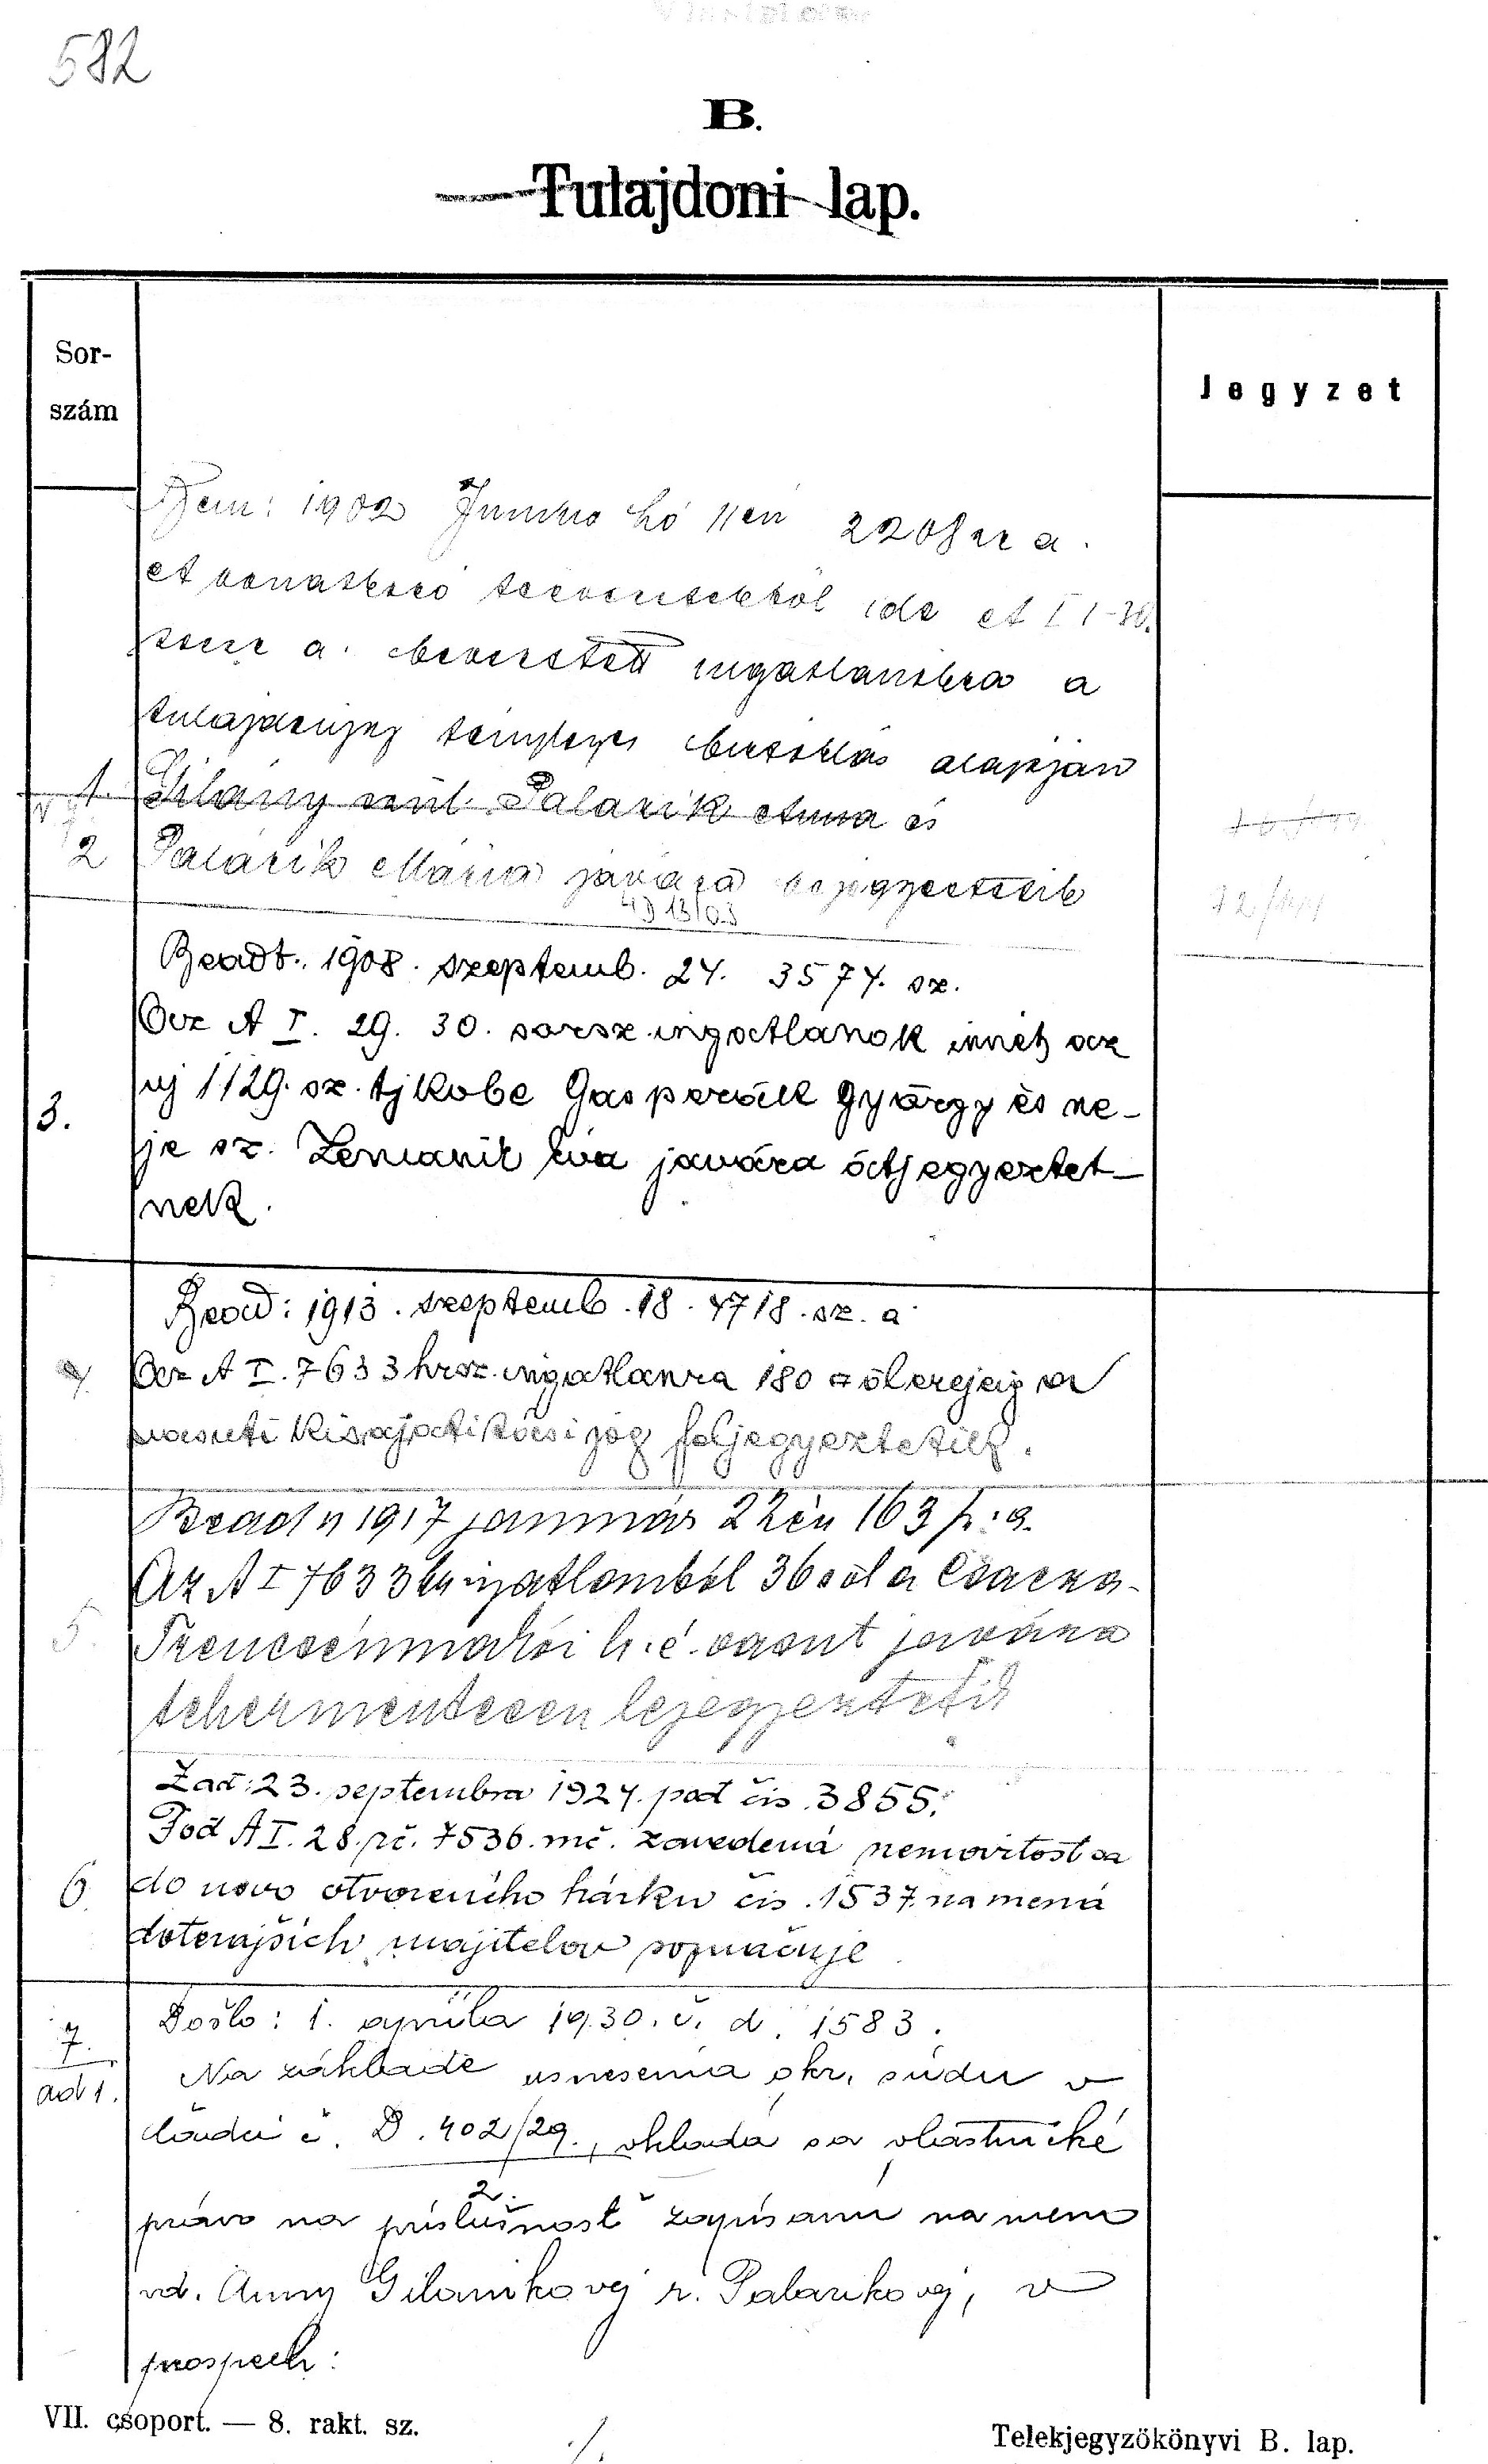 582
B.
Tulajdoni lap.
Sor-
szám
Jegyzet
1902 hó 11én 2208 sz a.
ide A I 1-30.
a. ingatlanokra a
tényleges birtoklás alapján
1. Gilány szül. Palarik Anna és
2 Palarik Mária javára bejegyeztetik
4913/03
Beadt. 1908. szeptemb. 24. 3574. sz.
Az A I. 29. 30. sorsz. ingatlanok innét az
uj 1129. sz. tjkvbe György és ne-
3.
je sz. Zemanik Éva javára átjegyeztet-
nek.
Bead: 1913. szeptemb. 18. 4718. sz. a
4. Az A I. 7633 hrsz. ingatlanra 180 □ öl erejéig a
vasuti kisajatitási jog feljegyeztetik.
Beadv 1917 január 22én 163 sz. a.
Az A I 7633 ingatlanból 36 □ öl a Csacza-
5. h. é. vasut javára
tehermentesen lejegyeztetik
Žad: 23. septembra 1924. pod čis. 3855.
Pod A I. 28. pč. 7536. mč. zavedená nemovitost sa
6. do novo otvoreného hárku čis. 1537. na mená
doterajších majitelov
Došlo: 1. apríla 1930. č. d. 1583.
7.
Na základe usnesenia okr. súdu v
ad 1.
Čadci č. D. 402/29., vkladá sa vlastnícké
2.
právo na príslušnosť zapísanú na meno
vd. Anny Gilanikovej r. Palarikovej, v
prospech:
VII. csoport. — 8. rakt. sz.
Telekjegyzökönyvi B. lap.